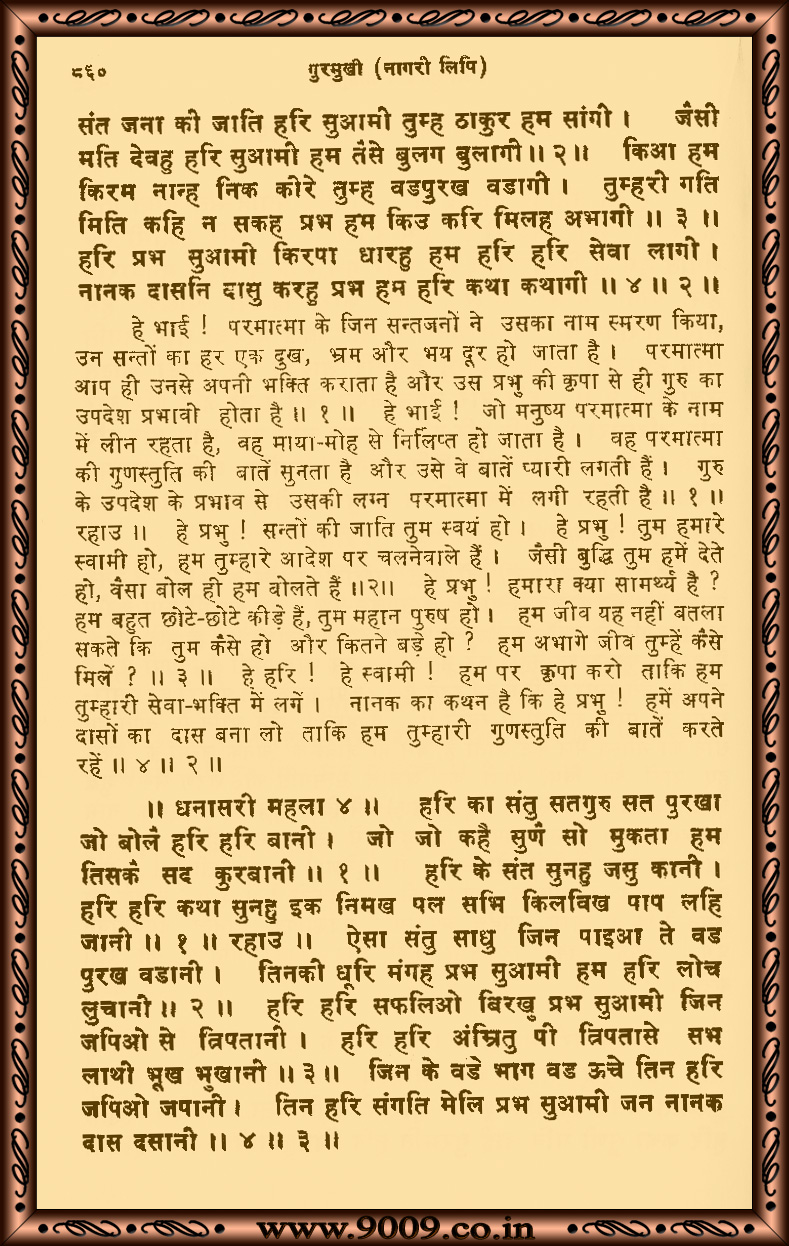 ८६०
गुरमुखी (नागरी लिपि)
संत जना की जाति हरि सुआमी तुम्ह ठाकुर हम सांगी । जैसी
मति देवहु हरि सुआमी हम तैसे बुलग बुलागी ॥ २ ॥ किआ हम
किरम नान्ह निक कीरे तुम्ह वडपुरख वडागी । तुम्हरी गति
मिति कहि न सकह प्रभ हम किउ करि मिलह अभागी ॥ ३ ॥
हरि प्रभ सुआमी किरपा धारहु हम हरि हरि सेवा लागी ।
नानक दासनि दासु करहु प्रभ हम हरि कथा कथागी ॥ ४ ॥ २ ॥
हे भाई ! परमात्मा के जिन सन्तजनों ने उसका नाम स्मरण किया,
उन सन्तों का हर एक दुख, भ्रम और भय दूर हो जाता है । परमात्मा
आप ही उनसे अपनी भक्ति कराता है और उस प्रभु की कृपा से ही गुरु का
उपदेश प्रभावी होता है ॥ १ ॥ हे भाई ! जो मनुष्य परमात्मा के नाम
में लीन रहता है, वह माया-मोह से निर्लिप्त हो जाता है । वह परमात्मा
की गुणस्तुति की बातें सुनता है और उसे वे बातें प्यारी लगती हैं । गुरु
के उपदेश के प्रभाव से उसकी लग्न परमात्मा में लगी रहती है ॥ १ ॥
रहाउ ॥ हे प्रभु ! सन्तों की जाति तुम स्वयं हो । हे प्रभु ! तुम हमारे
स्वामी हो, हम तुम्हारे आदेश पर चलनेवाले हैं । जैसी बुद्धि तुम हमें देते
हो, वैसा बोल ही हम बोलते हैं ॥२॥ हे प्रभु ! हमारा क्या सामर्थ्य है ?
हम बहुत छोटे-छोटे कीड़े हैं, तुम महान पुरुष हो । हम जीव यह नहीं बतला
सकते कि तुम कैसे हो और कितने बड़े हो ? हम अभागे जीव तुम्हें कैसे
मिलें ? ॥ ३ ॥ हे हरि ! हे स्वामी ! हम पर कृपा करो ताकि हम
तुम्हारी सेवा-भक्ति में लगें । नानक का कथन है कि हे प्रभु ! हमें अपने
दासों का दास बना लो ताकि हम तुम्हारी गुणस्तुति की बातें करते
रहें ॥ ४ ॥ २ ॥
॥ धनासरी महला ४ ॥ हरि का संतु सतगुरु सत पुरखा
जो बोलै हरि हरि बानी । जो जो कहै सुणै सो मुकता हम
तिसकै सद कुरबानी ॥ १ ॥ हरि के संत सुनहु जसु कानी ।
हरि हरि कथा सुनहु इक निमख पल सभि किलविख पाप लहि
जानी ॥ १ ॥ रहाउ ॥ ऐसा संतु साधु जिन पाइआ ते वड
पुरख वडानी । तिनकी धूरि मंगह प्रभ सुआमी हम हरि लोच
लुचानी ॥ २ ॥ हरि हरि सफलिओ बिरखु प्रभ सुआमी जिन
जपिओ से त्रिपतानी । हरि हरि अंम्रितु पी त्रिपतासे सभ
लाथी भूख भुखानी ॥ ३ ॥ जिन के वडे भाग वड ऊचे तिन हरि
जपिओ जपानी । तिन हरि संगति मेलि प्रभ सुआमी जन नानक
दास दसानी ॥ ४ ॥ ३ ॥
www.9009.co.in